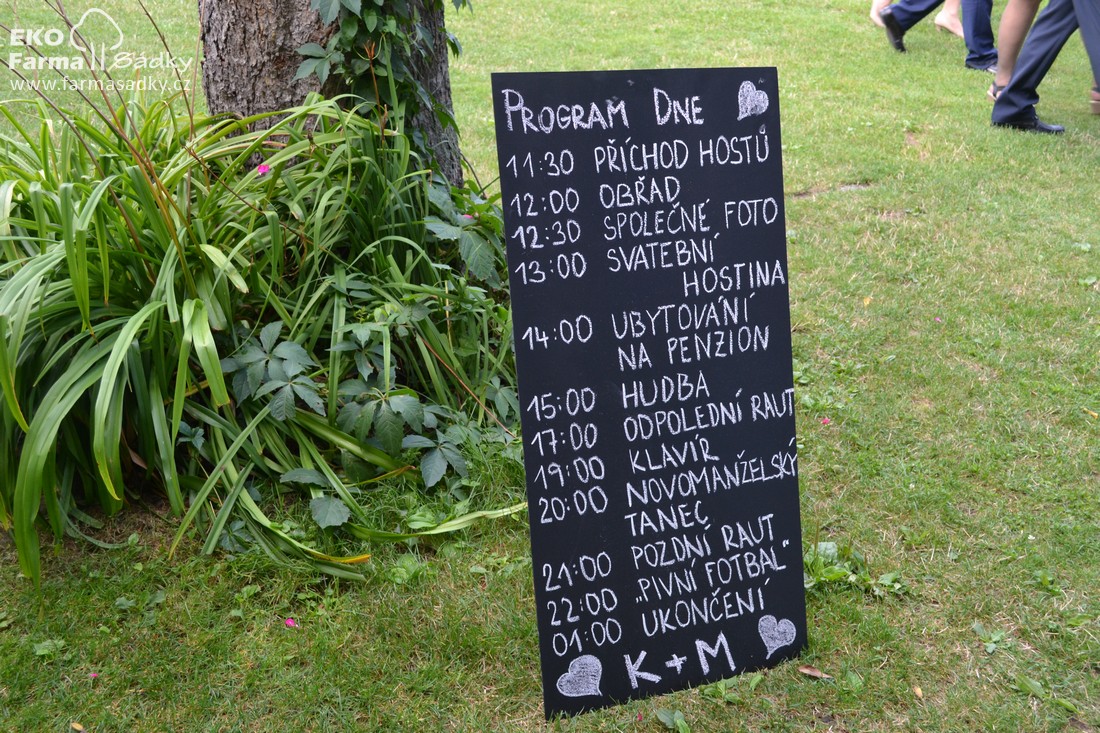 EKO
Farma Sádky
www.farmasadky.cz
PROGRAM DNE
11:30 PŘÍCHOD HOSTŮ
12:00 OBŘAD
12:30 SPOLEČNÉ FOTO
13:00 SVATEBNÍ
HOSTINA
14:00 UBYTOVÁNÍ
NA PENZION
15:00 HUDBA
17:00 ODPOLEDNÍ RAUT
19:00 KLAVÍR
20:00 NOVOMANŽELSKÝ
TANEČ
21:00 POZDNÍ RAUT
22:00 „PIVNÍ FOTBAL“
01:00 UKONČENÍ
K + M